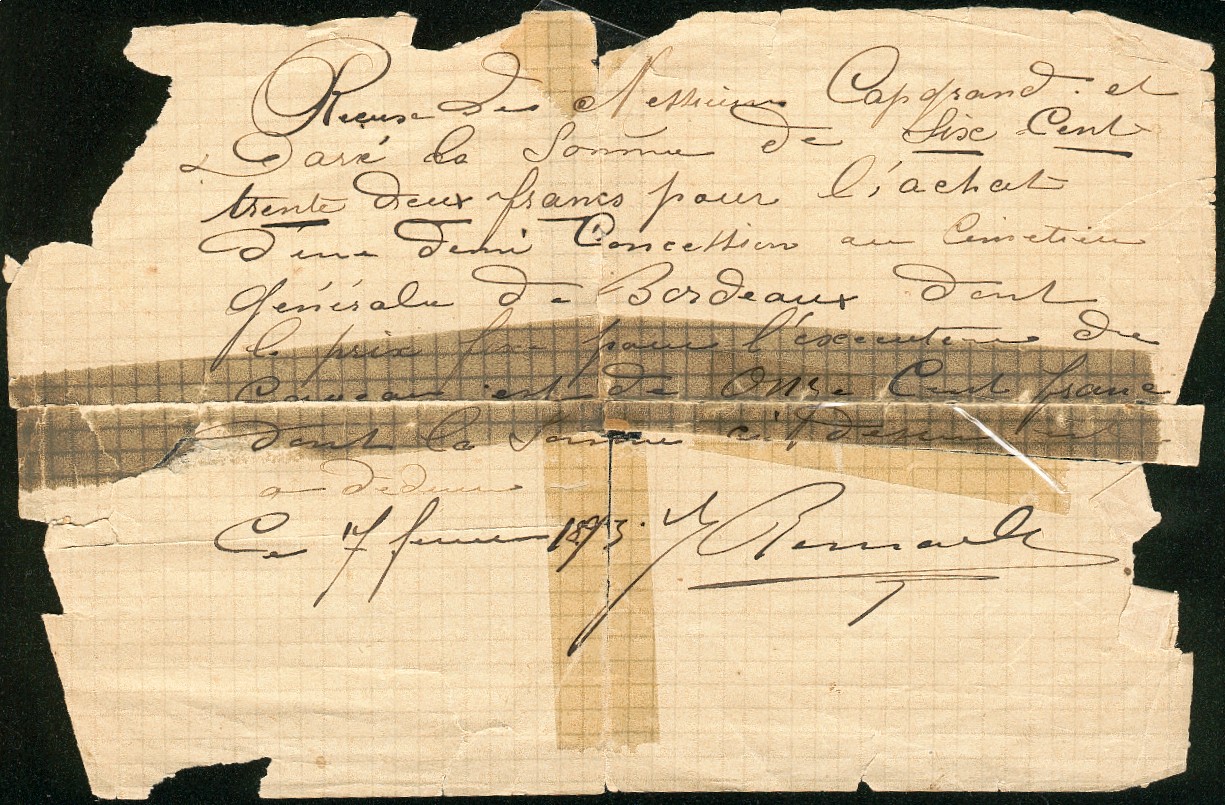 Reçus des Messieurs Capgrand et
Daré la Somme de Six Cent
trente deux francs pour l'achat
d'une demi Concession au Cimetieu
Générale de Bordeaux dont
le prix fixe pour l'execution du
Caveau est de Onze Cent franc
dont la Somme ci dessus est
a deduire
Ce 7 fevrier 1893.